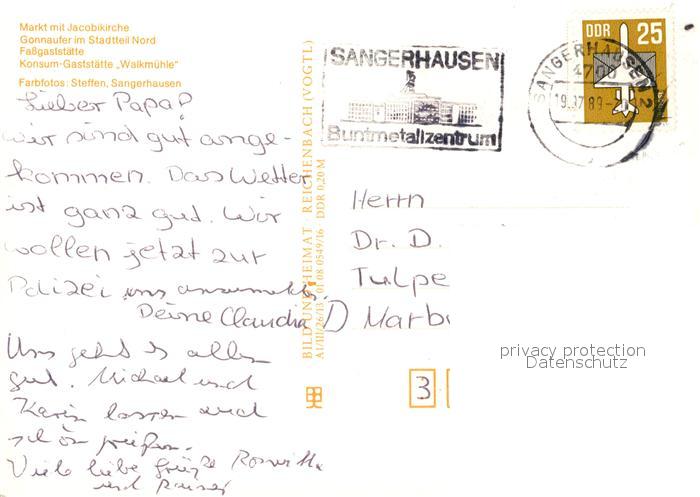 Markt mit Jacobikirche
Gonnaufer im Stadtteil Nord
Faßgaststätte
Konsum-Gaststätte „Walkmühle"
Farbfotos: Steffen, Sangerhausen
Lieber Papa!
wir sind gut ange-
kommen. Das Wetter
ist ganz gut. Wir
wollen jetzt zur
Polizei uns anzumelden.
Deine Claudia
Uns geht es allen
gut. Michael und
Karin lassen auch
schön grüßen.
Viele liebe Grüße Roswitha
und Rainer
BILD UND HEIMAT REICHENBACH (VOGTL)
A1/III/26/13 01 08 0549/16 DDR 0,20 M
SANGERHAUSEN
Buntmetallzentrum
DDR 25
SANGERHAUSEN 2
4700
19.07.89
Herrn
Dr. D.
Tulpe
D Marb
3
privacy protection
Datenschutz